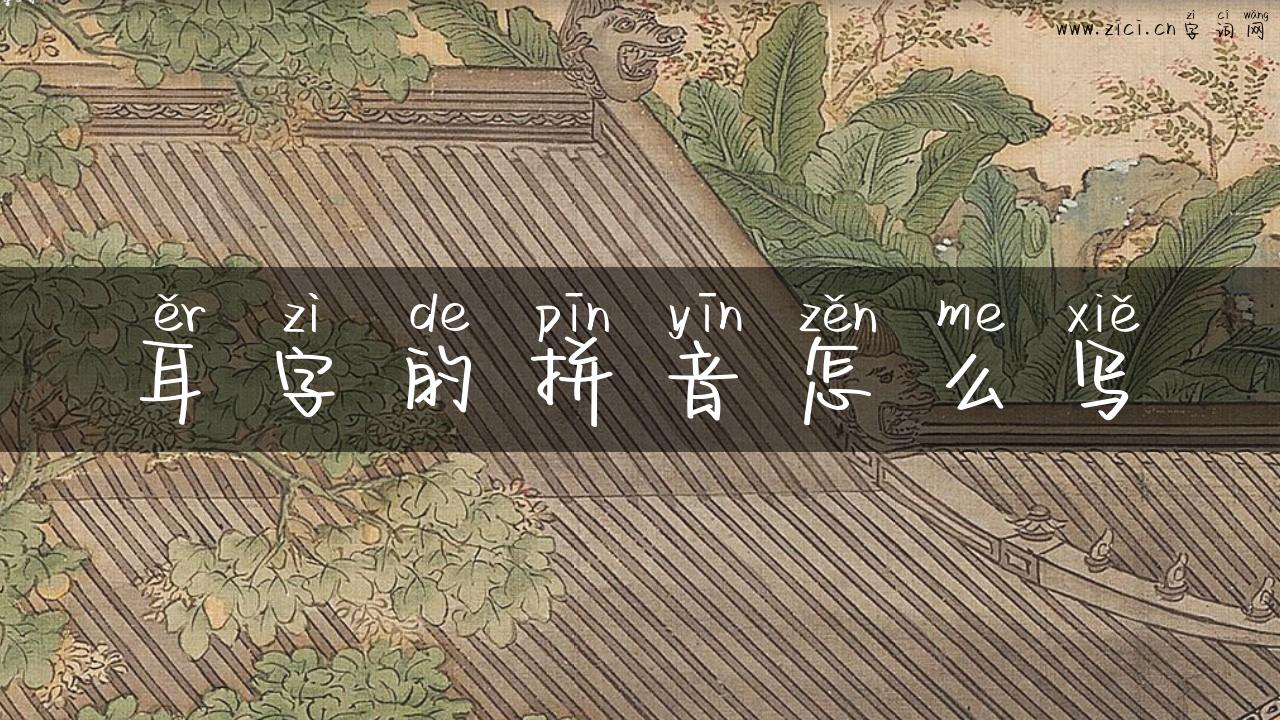 zì cí wǎng
www.zici.cn 字词网
ěr zì de pīn yīn zěn me xiě
耳字的拼音怎么写